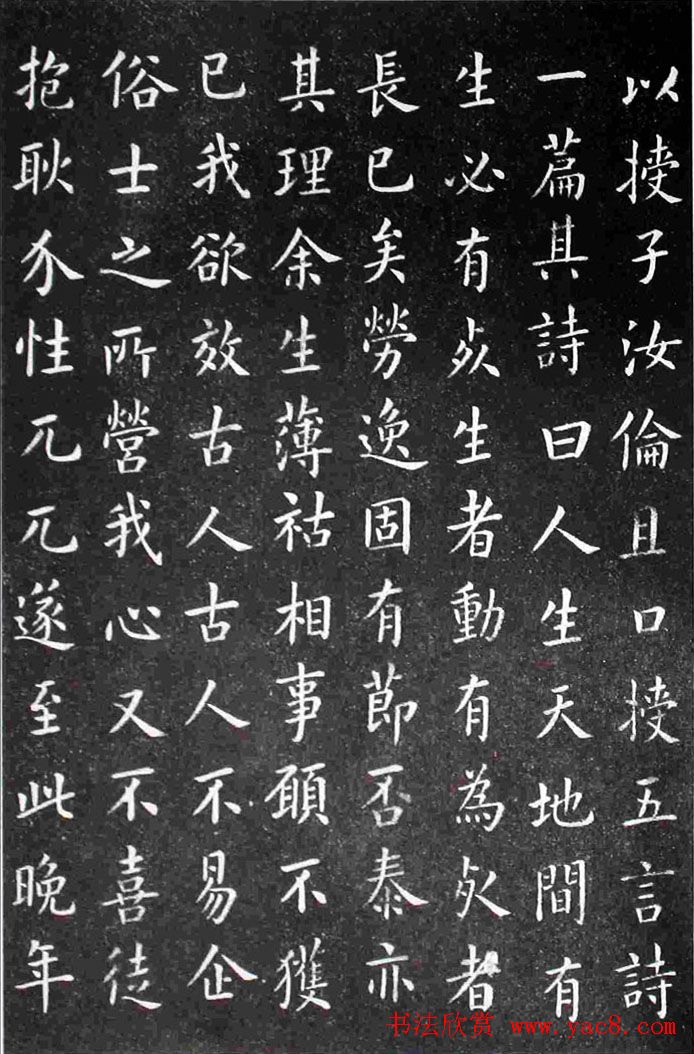 以授子汝倫且口授五言詩
一篇其詩曰人生天地間有
生必有死生者動有為死者
長已矣勞逸固有節否泰亦
其理余生薄祜相事願不獲
已我欲效古人古人不易企
俗士之所營我心又不喜徒
抱耿介性兀兀遂至此晚年
书法欣赏 www.yac8.com